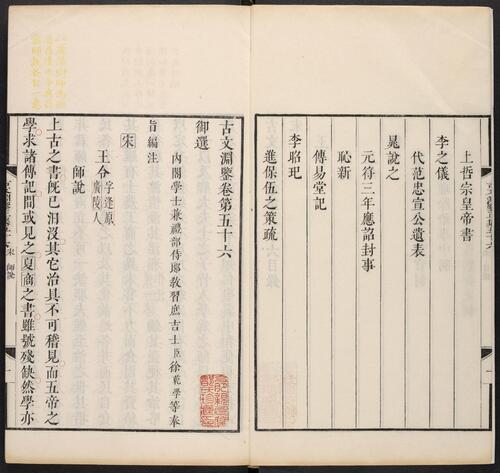 上哲宗皇帝書
李之儀
代范忠宣公遺表
晁說之
元符三年應詔封事
恥新
傳易堂記
李昭玘
進保伍之策疏
古文淵鑒卷第五十六
御選
內閣學士兼禮部侍郎教習庶吉士臣徐乾學等奉
旨編注
宋
王令字逢原廣陵人
師說
上古之書旣已汩沒其它治具不可稽見而五帝之
學求諸傳記間或見之夏商之書雖號殘缺然學亦